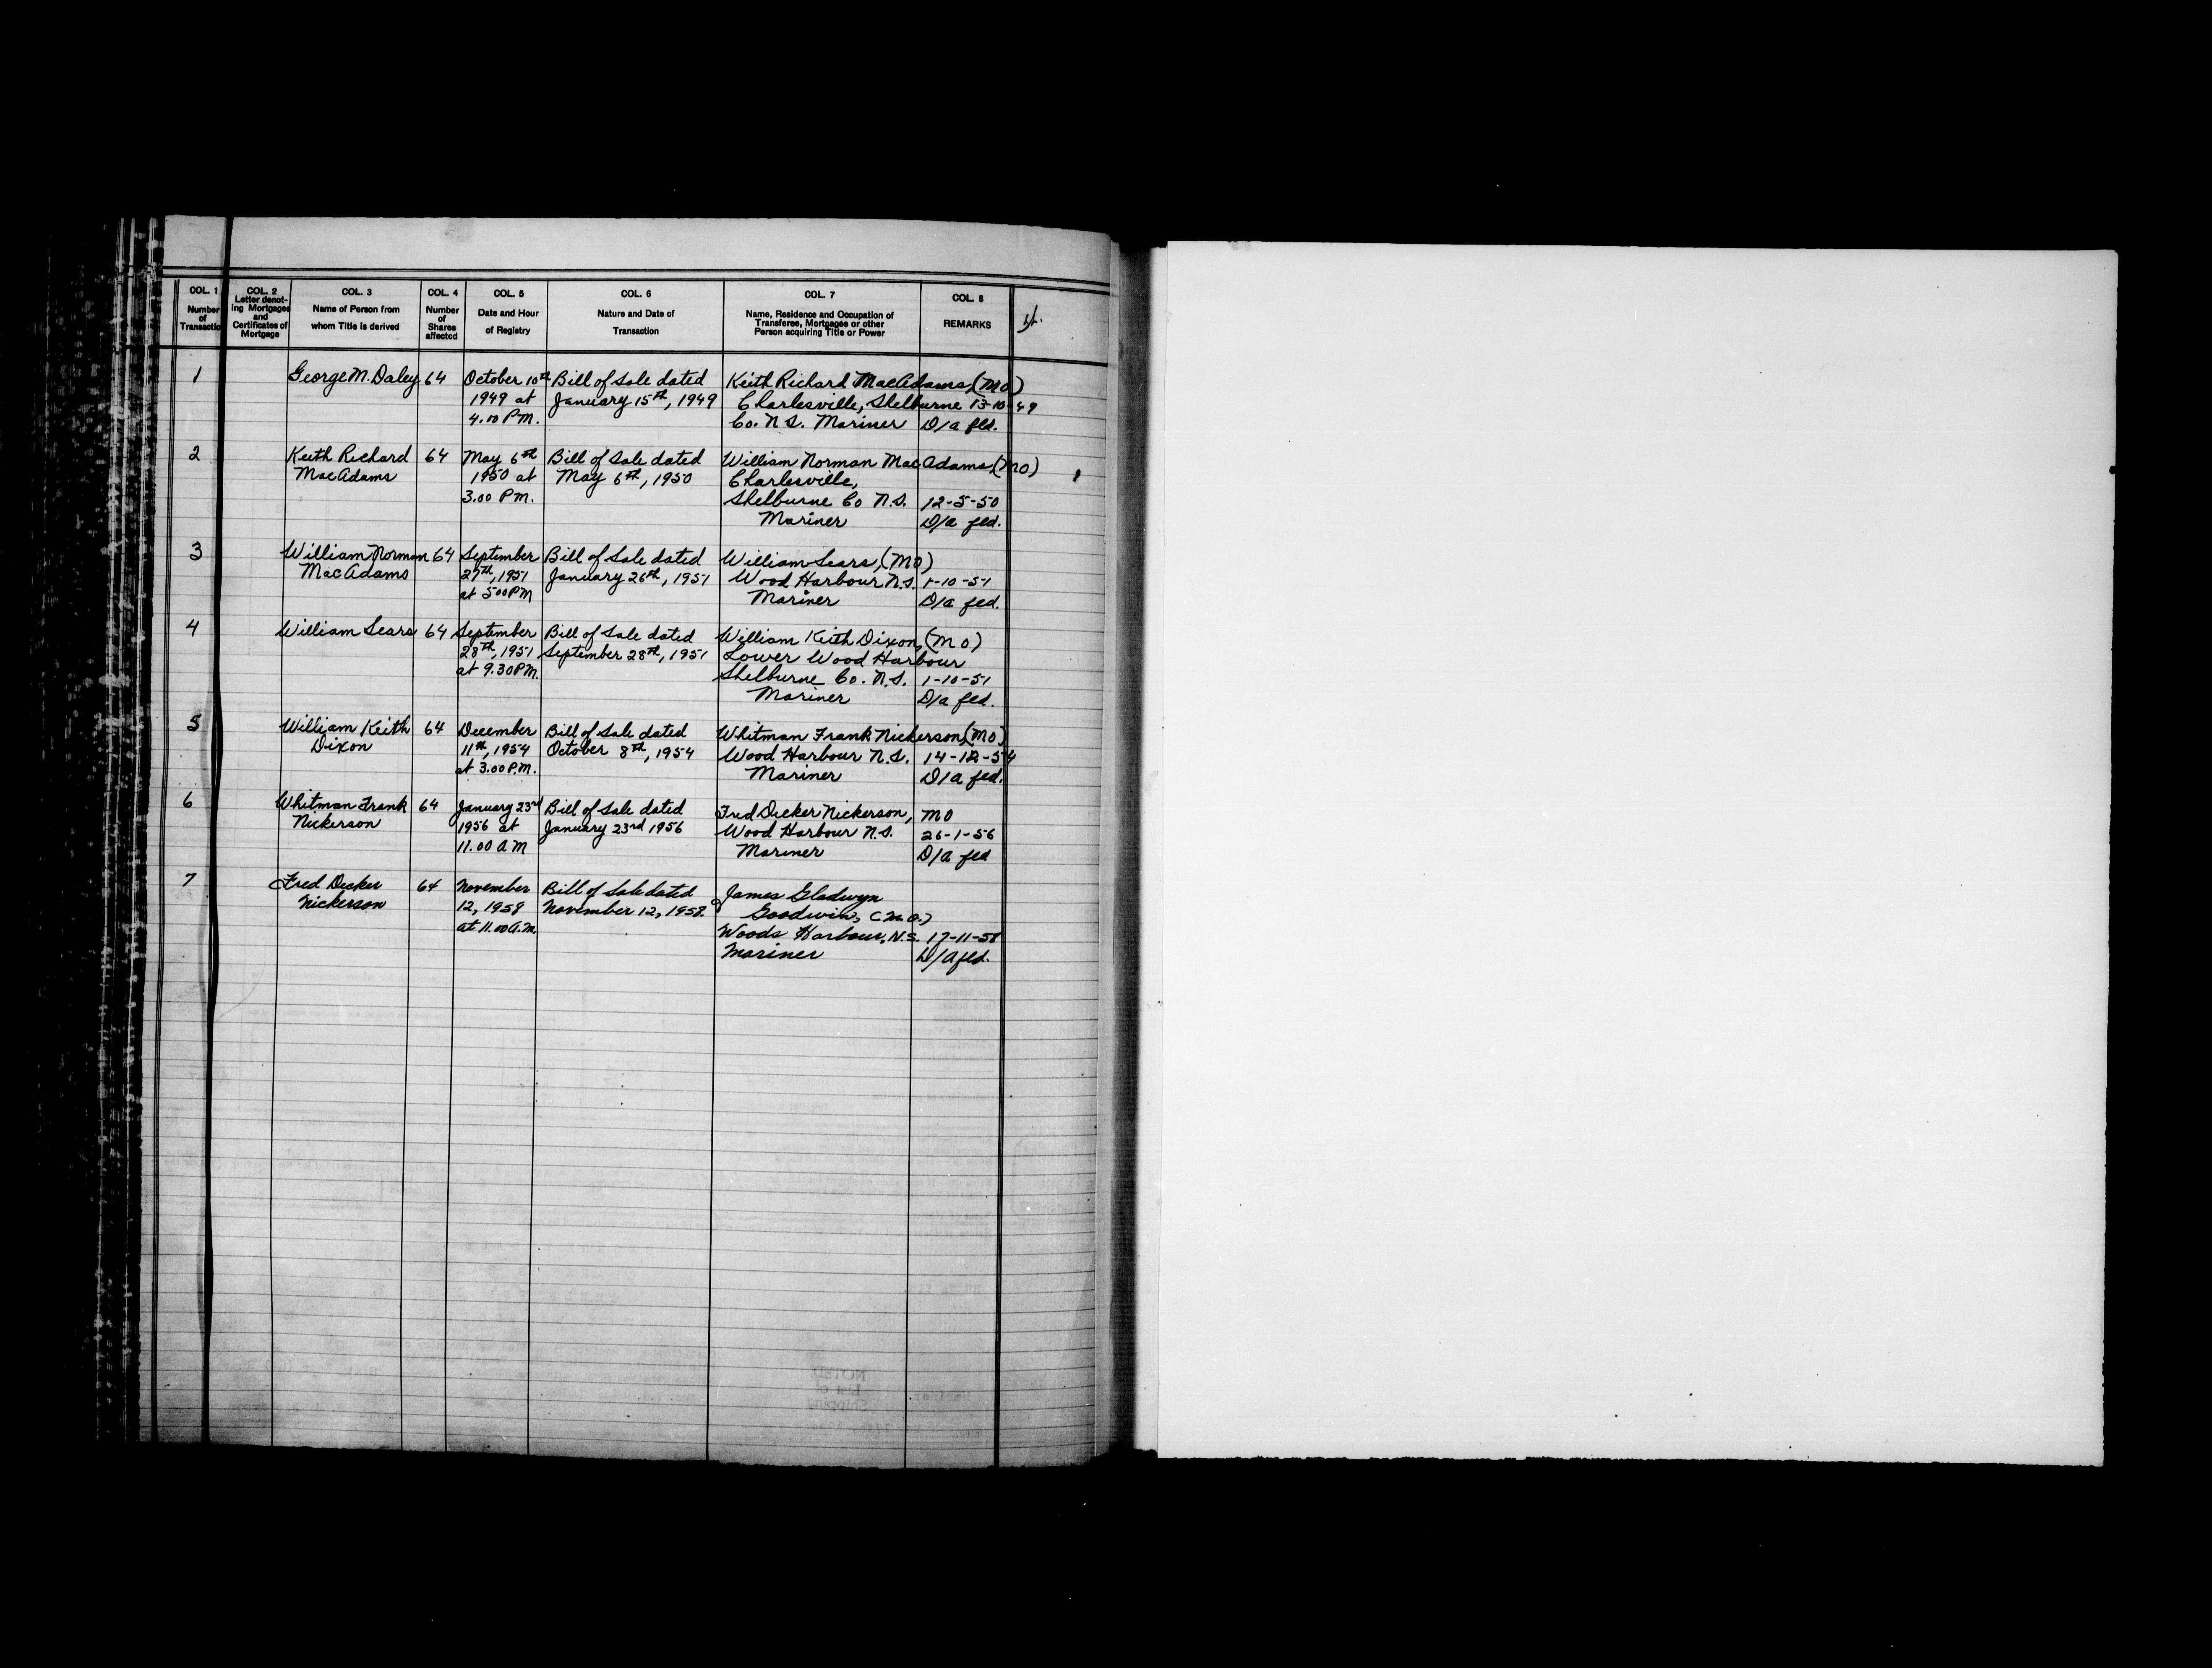 COL. 1
Number
of
Transactio
COL. 2
Letter denot-
ing Mortgages
and
Certificates of
Mortgage
COL. 3
Name of Person from
whom Title is derived
COL. 4
Number
of
Shares
affected
COL. 5
Date and Hour
of Registry
COL. 6
Nature and Date of
Transaction
COL. 7
Name, Residence and Occupation of
Transferee, Mortgagee or other
Person acquiring Title or Power
COL. 8
REMARKS
1 George M. Daley 64 October 10th Bill of Sale dated Keith Richard MacAdams, (MO)
1949 at January 15th, 1949 Charlesville, Shelburne 13-10-49
4.00 P.M. Co. N.S. Mariner D/a fld.
2 Keith Richard 64 May 6th Bill of Sale dated William Norman MacAdams, (MO)
MacAdams 1950 at May 6th, 1950 Charlesville,
3.00 P.M. Shelburne Co N.S. 12-5-50
Mariner D/a fld.
3 William Norman 64 September Bill of Sale dated William Sears, (MO)
MacAdams 27th, 1951 January 26th, 1951 Wood Harbour N.S. 1-10-51
at 5.00 PM Mariner D/a fld.
4 William Sears 64 September Bill of Sale dated William Keith Dixon, (MO)
28th, 1951 September 28th, 1951 Lower Wood Harbour
at 9.30 P.M. Shelburne Co. N.S. 1-10-51
Mariner D/a fld.
5 William Keith 64 December Bill of Sale dated Whitman Frank Nickerson, (MO)
Dixon 11th, 1954 October 8th, 1954 Wood Harbour N.S. 14-12-54
at 3.00 P.M. Mariner D/a fld.
6 Whitman Frank 64 January 23rd Bill of Sale dated Fred Decker Nickerson, MO
Nickerson 1956 at January 23rd 1956 Wood Harbour N.S. 26-1-56
11.00 A M Mariner D/a fld
7 Fred Decker 64 November Bill of Sale dated James Gladwyn
Nickerson 12, 1958 November 12, 1958. Goodwin, (M.O.)
at 11.00 A.M. Woods Harbour, N.S. 17-11-58
Mariner D/A fld.
NOTED
List of
Shipping